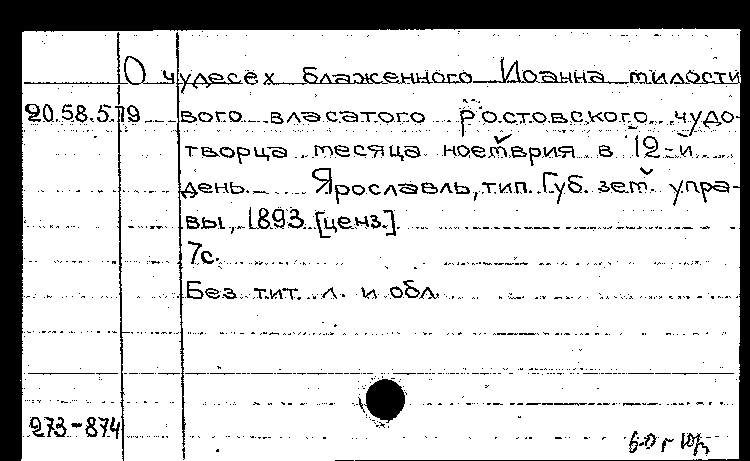 О чудесех блаженного Иоанна милости
20.58.5.79 вого власатого Ростовского чудо-
творца месяца ноемврия в 12-й
день. Ярославль, тип. Губ. зем. упра-
вы, 1893 [ценз.].
7с.
Без тит. л. и обл.
273-874